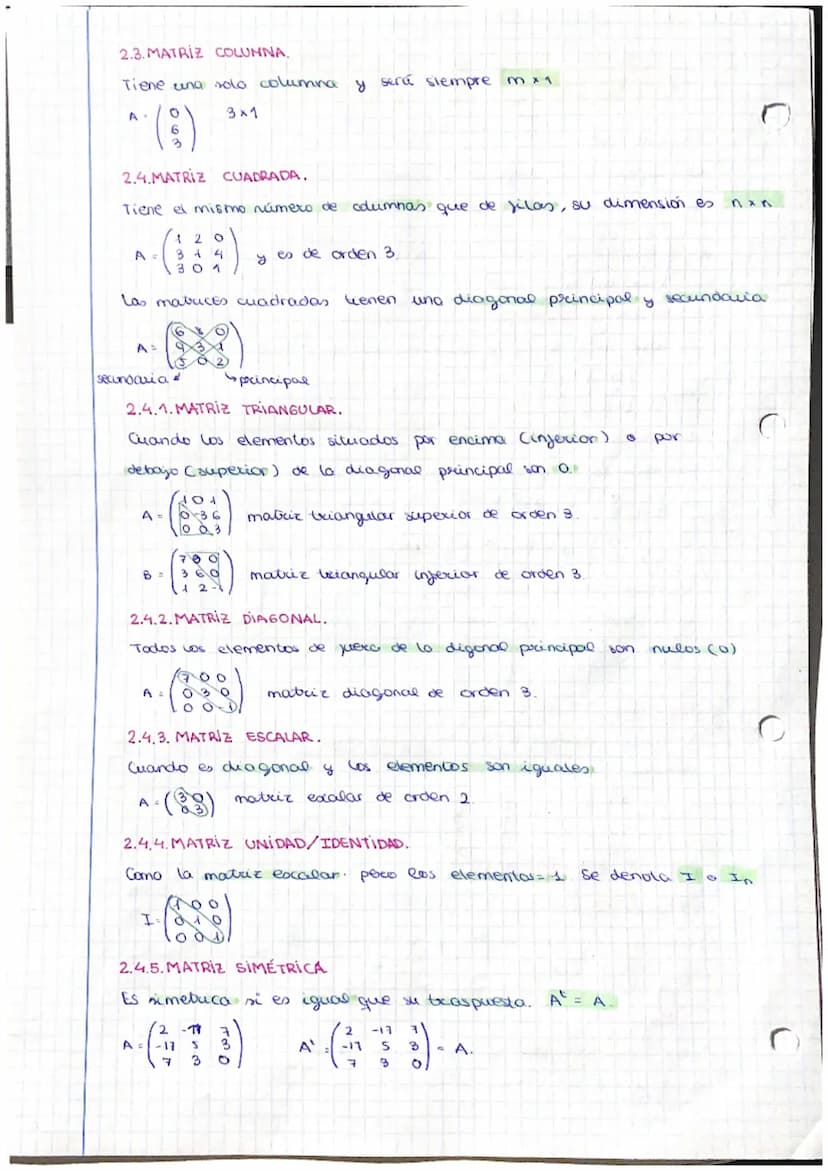 2.3. MATRIZ COLUMNA.
Tiene una solo columna y será siempre m x 1
A = ( 0 6 3 ) 3 x 1
2.4. MATRIZ CUADRADA.
Tiene el mismo número de columnas que de filas, su dimensión es n x n
A = ( 1 2 0 / 3 1 4 / 3 0 1 ) y es de orden 3.
Las matrices cuadradas tienen una diagonal principal y secundaria
A = ( 6 8 0 / 9 3 1 / 5 0 2 )
secundaria principal
2.4.1. MATRIZ TRIANGULAR.
Cuando los elementos situados por encima (inferior) o por
debajo (superior) de la diagonal principal son 0.
A = ( 1 0 1 / 0 -3 6 / 0 0 3 ) matriz triangular superior de orden 3.
B = ( 7 0 0 / 3 6 0 / 1 2 -1 ) matriz triangular inferior de orden 3.
2.4.2. MATRIZ DIAGONAL.
Todos los elementos de fuera de la digonal principal son nulos (0)
A = ( 7 0 0 / 0 3 0 / 0 0 -1 ) matriz diagonal de orden 3.
2.4.3. MATRIZ ESCALAR.
Cuando es diagonal y los elementos son iguales
A = ( 3 0 / 0 3 ) matriz escalar de orden 2.
2.4.4. MATRIZ UNIDAD/IDENTIDAD.
Como la matriz escalar. pero los elementos = 1 Se denota I o In
I = ( 1 0 0 / 0 1 0 / 0 0 1 )
2.4.5. MATRIZ SIMÉTRICA
Es simetrica si es igual que su traspuesta. Aᵗ = A.
A = ( 2 -17 7 / -17 5 3 / 7 3 0 ) Aᵗ = ( 2 -17 7 / -17 5 3 / 7 3 0 ) = A.